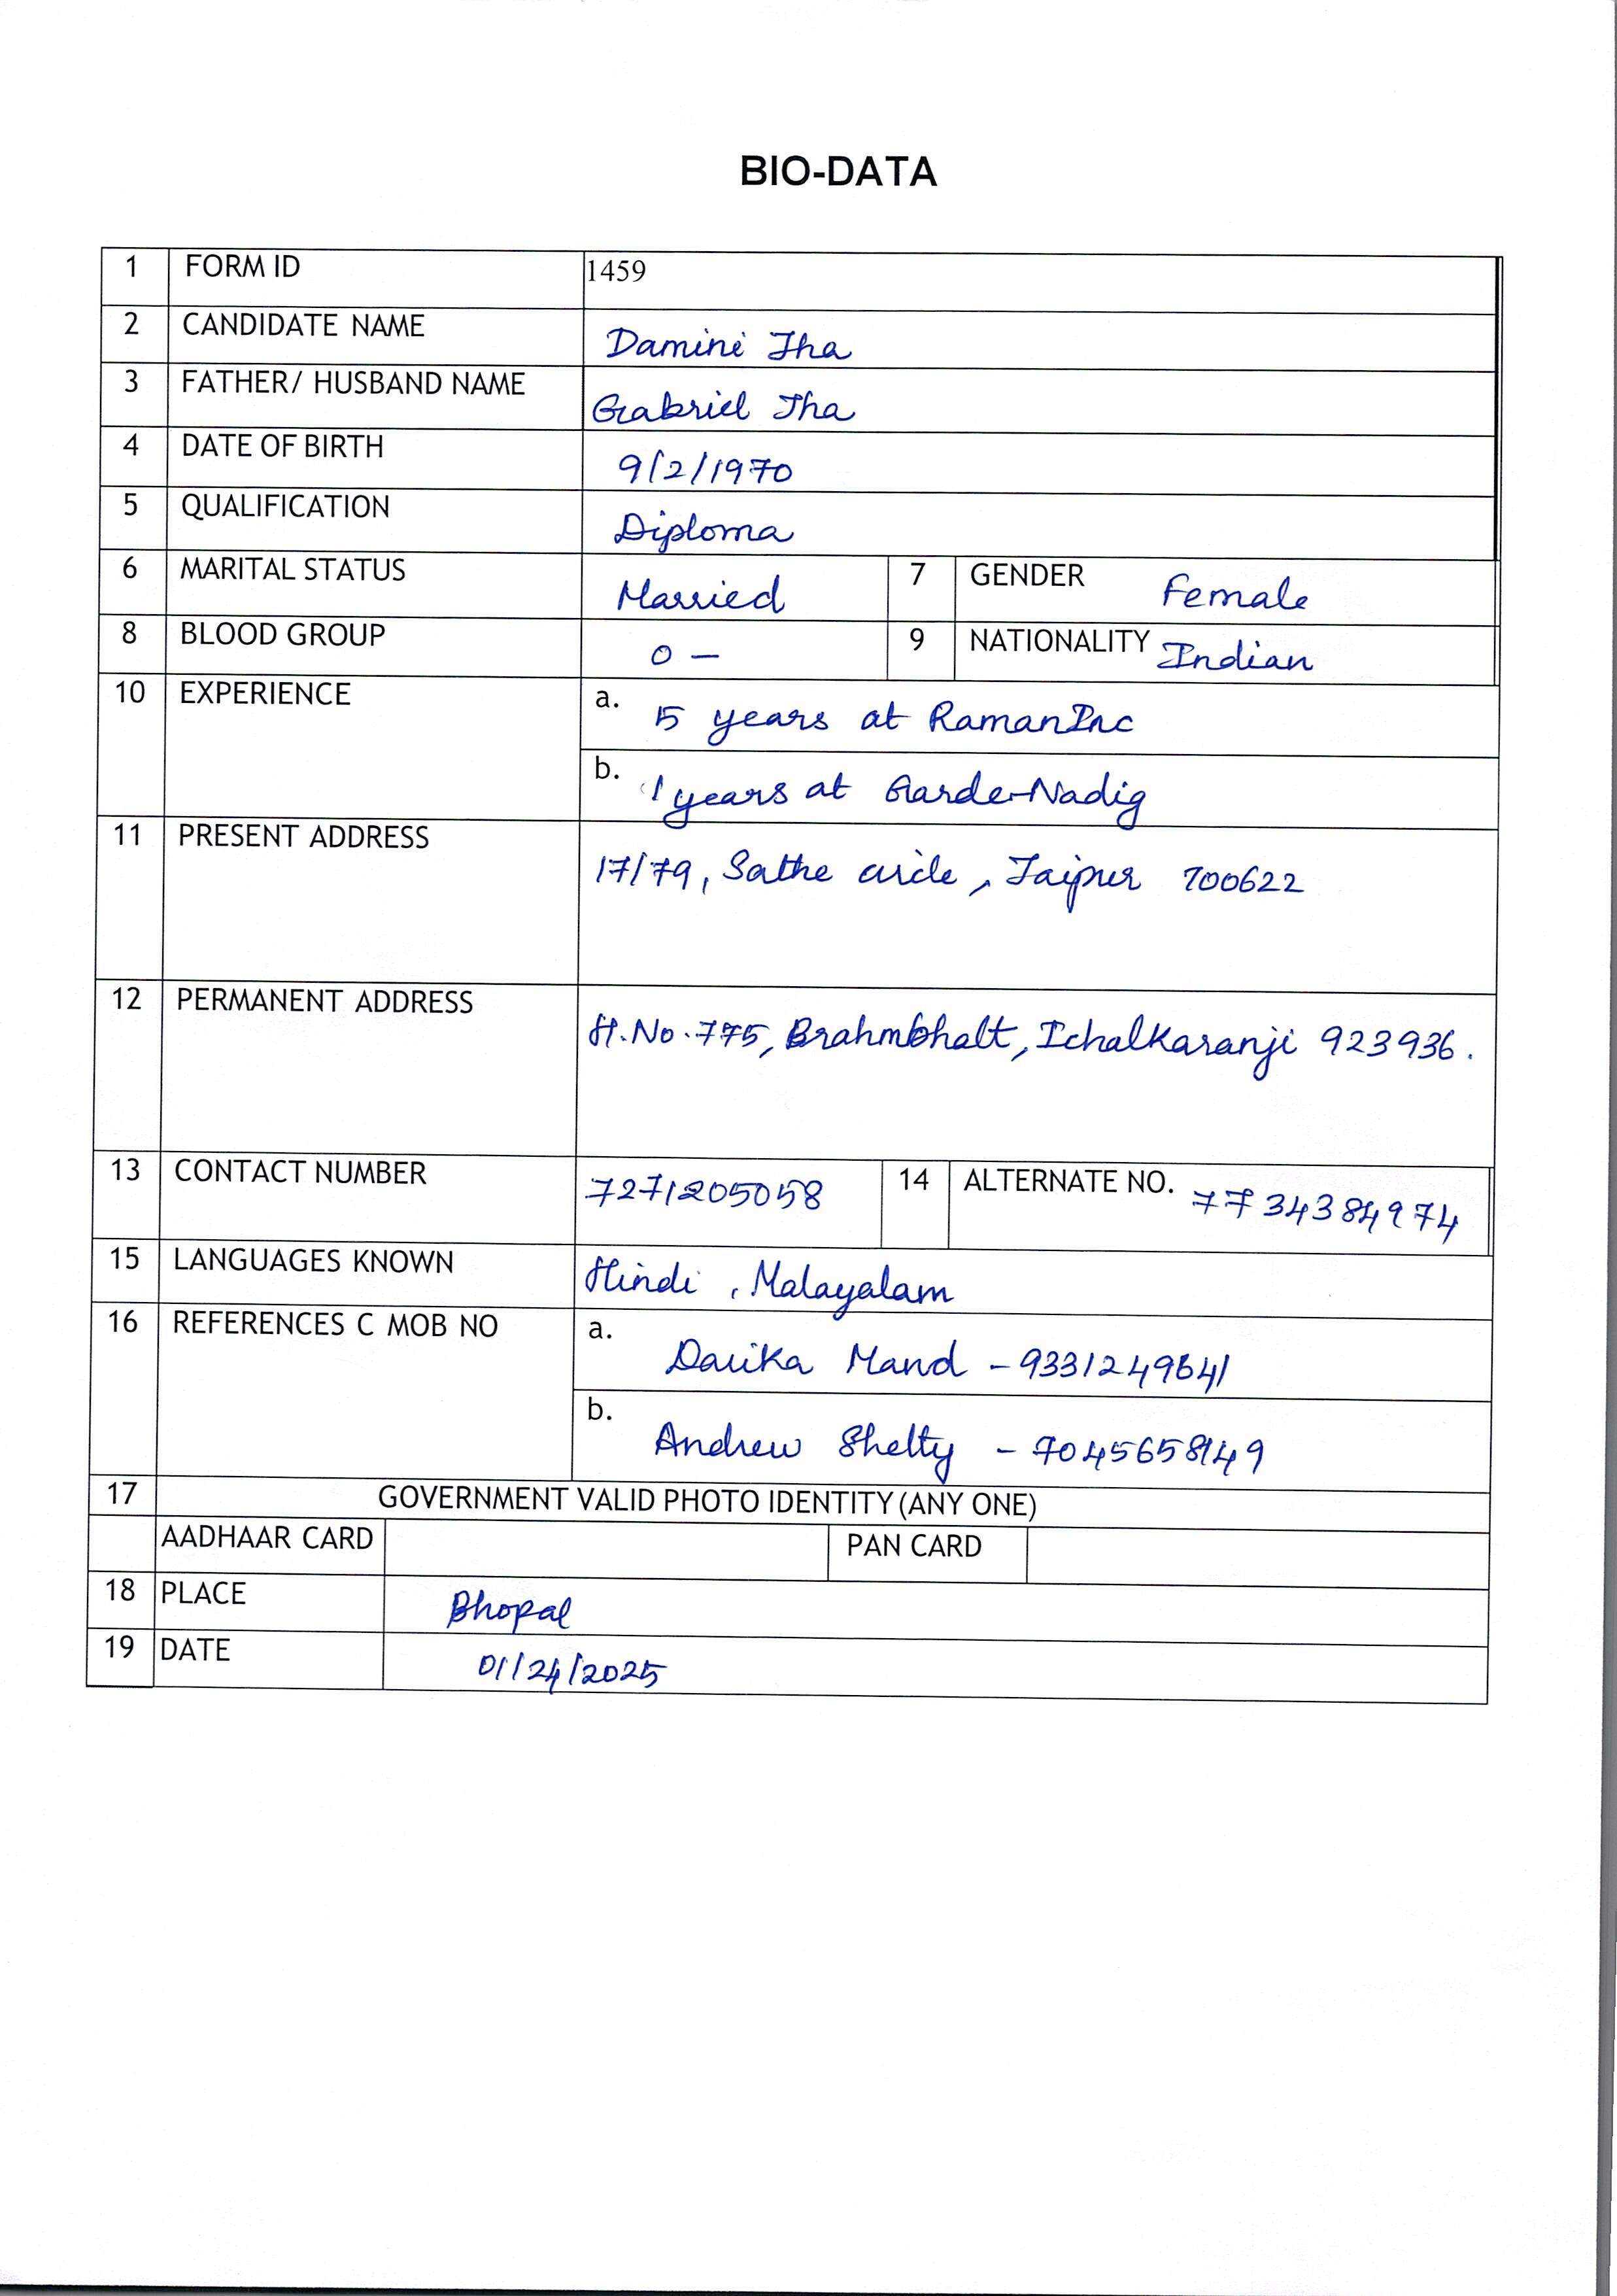 BIO-DATA
1 FORM ID 1459
2 CANDIDATE NAME Damini Jha
3 FATHER/ HUSBAND NAME Gabriel Jha
4 DATE OF BIRTH 9/2/1970
5 QUALIFICATION Diploma
6 MARITAL STATUS Married 7 GENDER Female
8 BLOOD GROUP O - 9 NATIONALITY Indian
10 EXPERIENCE a. 5 years at RamanInc
b. 1 years at Garde-Nadig
11 PRESENT ADDRESS 17/79, Sathe circle, Jaipur 700622
12 PERMANENT ADDRESS H.No.775, Brahmbhatt, Ichalkaranji 923936.
13 CONTACT NUMBER 7271205058 14 ALTERNATE NO. 7734384974
15 LANGUAGES KNOWN Hindi, Malayalam
16 REFERENCES C MOB NO a. Darika Mand - 9331249641
b. Andrew Shetty - 7045658149
17 GOVERNMENT VALID PHOTO IDENTITY (ANY ONE)
AADHAAR CARD PAN CARD
18 PLACE Bhopal
19 DATE 01/24/2025